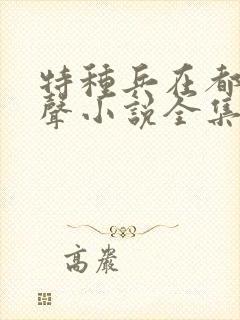 特種兵在都
聲小說全集
高嚴